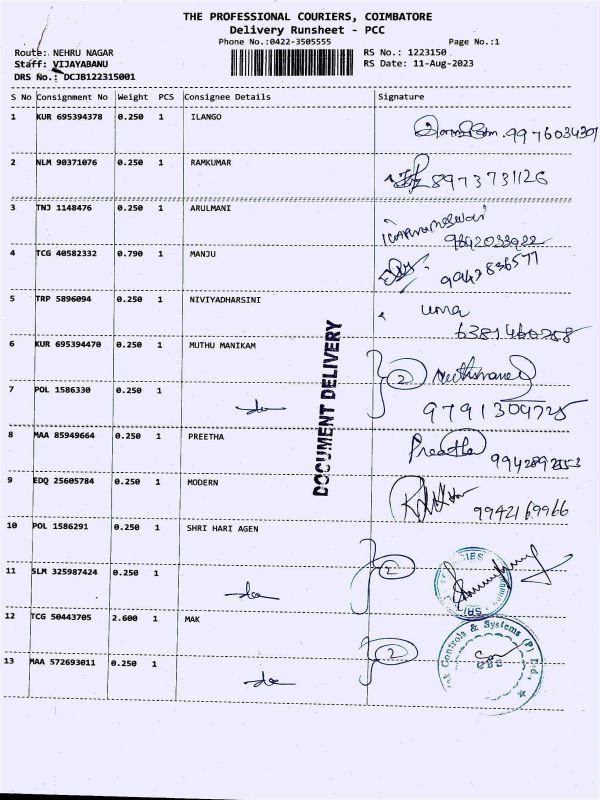 THE PROFESSIONAL COURIERS, COIMBATORE
Delivery Runsheet - PCC
Phone No.:0422-3505555 Page No.:1
Route: NEHRU NAGAR RS No.: 1223150
Staff: VIJAYABANU RS Date: 11-Aug-2023
DRS No.: DCJB122315001
S No Consignment No Weight PCS Consignee Details Signature
1 KUR 695394378 0.250 1 ILANGO 9976034301
2 NLM 90371076 0.250 1 RAMKUMAR 8973731126
3 TNJ 1148476 0.250 1 ARULMANI 9842033922
4 TCG 40582332 0.790 1 MANJU 9943836577
5 TRP 5896094 0.250 1 NIVIYADHARSINI uma
6381460258
6 KUR 695394470 0.250 1 MUTHU MANIKAM 2
7 POL 1586330 0.250 1 do 9791309725
DOCUMENT DELIVERY
8 MAA 85949664 0.250 1 PREETHA Preetha
9942892553
9 EDQ 25605784 0.250 1 MODERN 9942169966
10 POL 1586291 0.250 1 SHRI HARI AGEN
11 SLM 325987424 0.250 1 do 2
12 TCG 50443705 2.600 1 MAK
13 MAA 572693011 0.250 1 do 2
Controls & Systems (P) Ltd